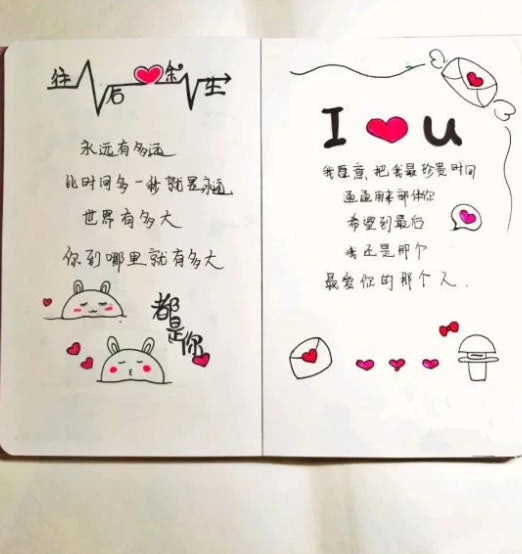 往后余生
永远有多远
比时间多一秒就是永远
世界有多大
你到哪里就有多大
都是你
I U
我愿意把我最珍贵时间
通通用来陪伴你
希望到最后
我还是那个
最爱你的那个人.